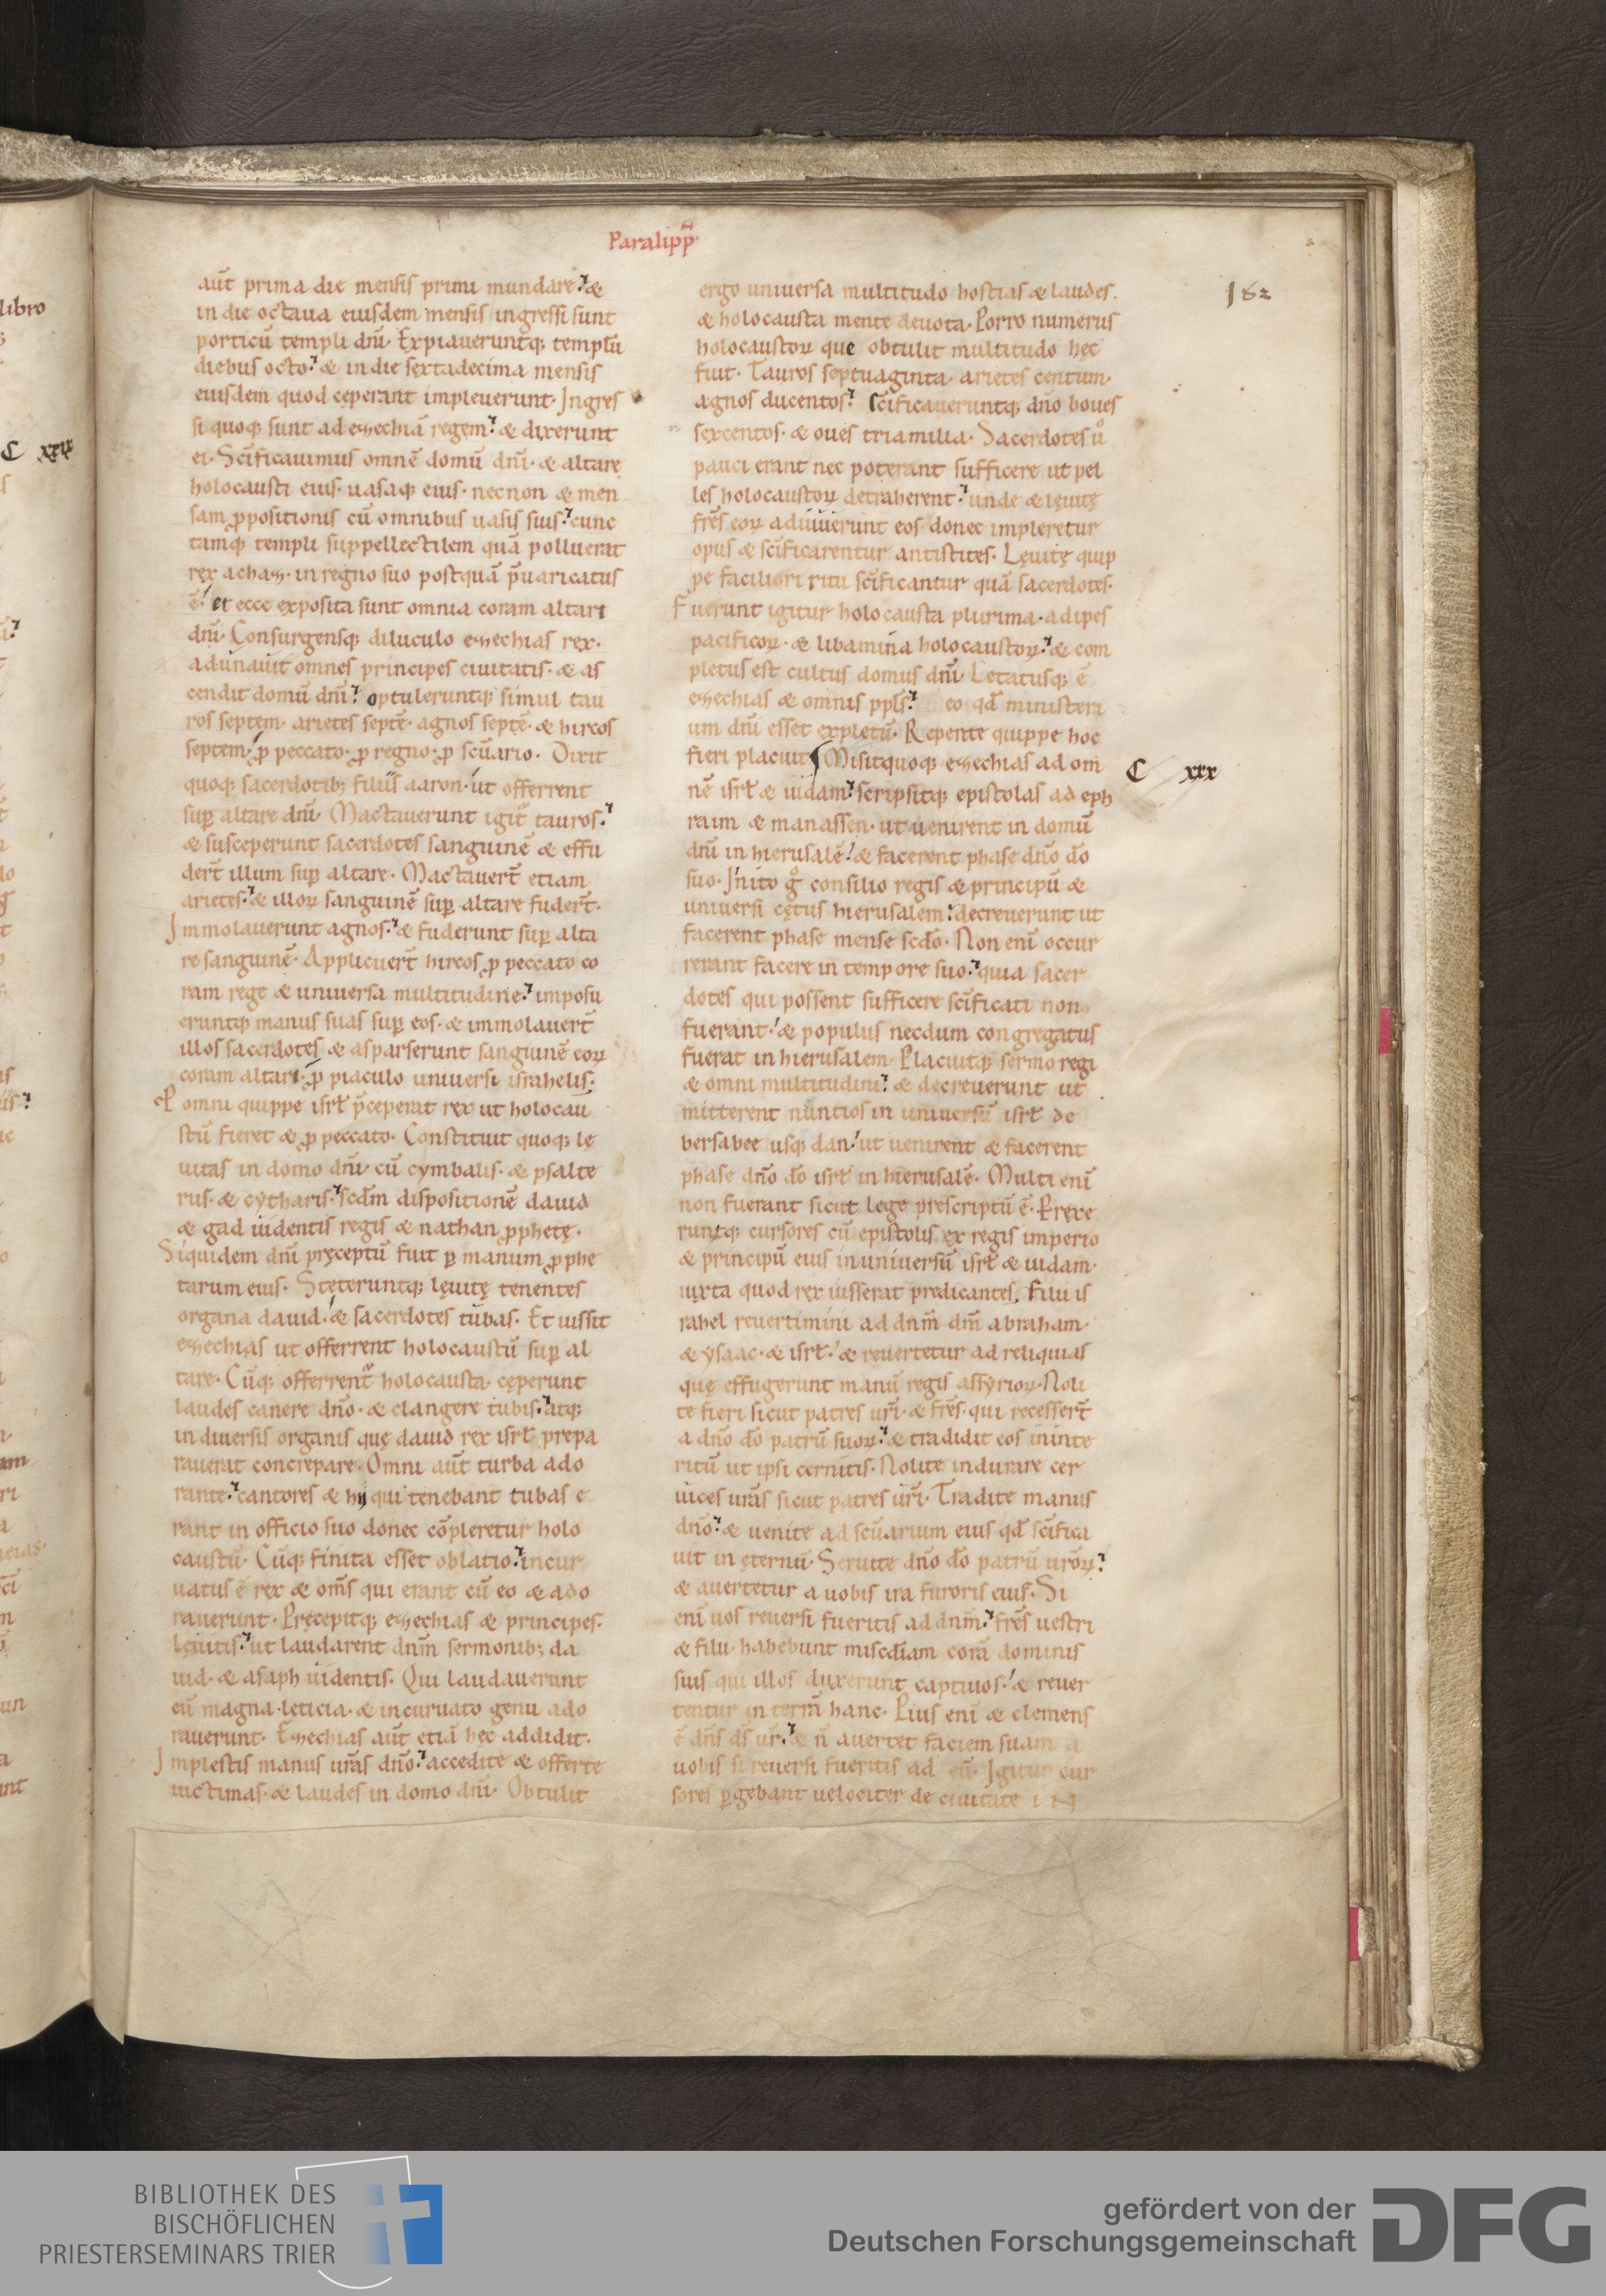 Paralipp̄
aut̄ prima die mensis primi mundare. &
in die octaua eiusdem mensis ingressi sunt
porticū templi dn̄i. Expiaueruntq; templū
diebus octo. & in die sextadecima mensis
eiusdem quod cęperant impleuerunt. Ingres
si quoq; sunt ad ezechiā regem. & dixerunt
ei. Sc̄ificauimus omnē domū dn̄i. & altare
holocausti eius. uasaq; eius. necnon & men
sam ꝓpositionis cū omnibus uasis suis. cunc
tamq; templi suppellectilem quā polluerat
rex achaz. in regno suo postquā p̄uaricatus
ē. et ecce exposita sunt omnia coram altari
dn̄i. Consurgensq; diluculo ezechias rex.
adunauit omnes principes ciuitatis. & as
cendit domū dn̄i. optuleruntq; simul tau
ros septem. arietes septē. agnos septē. & hircos
septem. ꝓ peccato. ꝓ regno. ꝓ scūario. Dixit
quoq; sacerdotib; filiis aaron. ut offerrent
sup̱ altare dn̄i. Mactauerunt igit᷑ tauros.
& susceperunt sacerdotes sanguinē & effu
dert̄ illum sup̱ altare. Mactauert̄ etiam
arietes. & illoꝝ sanguinē sup̱ altare fudert̄.
Immolauerunt agnos. & fuderunt sup̱ alta
re sanguinē. Applicuert̄ hircos ꝓ peccato co
ram rege & uniuersa multitudine. imposu
eruntq; manus suas sup̱ eos. & immolauert̄
illos sacerdotes & asparserunt sanguinē eoꝝ
coram altari. ꝓ piaculo uniuersi israhelis.
P omni quippe isrl̄ p̄ceperat rex ut holocau
stū fieret & ꝓ peccato. Constituit quoq; lę
uitas in domo dn̄i. cū cymbalis. & psalte
riis. & cytharis. scd̄m dispositionē dauid
& gad uidentis regis & nathan ꝓphetę.
Siquidem dn̄i pręceptū fuit ꝑ manum ꝓphe
tarum eius. Steteruntq; lęuitę tenentes
organa dauid. & sacerdotes tubas. Et iussit
ezechias ut offerrent holocaustū sup̱ al
tare. Cūq; offerrent᷑ holocausta cęperunt
laudes canere dn̄o. & clangere tubis. atq;
in diuersis organis quę dauid rex isrl̄ prepa
rauerat concrepare. Omni aut̄ turba ado
rante. cantores & hij qui tenebant tubas e
rant in officio suo donec cōpleretur holo
caustū. Cūq; finita esset oblatio. incur
uatus ē rex & om̄s qui erant cū eo & ado
rauerunt. Pręcepitq; ezechias & principes.
lęuitis. ut laudarent dnm̄ sermonib; da
uid. & asaph uidentis. Qui laudauerunt
eū magna lęticia. & incuruato genu ado
rauerunt. Ezechias aut̄ etiā hęc addidit.
Implestis manus urās dn̄o. accedite & offerte
uictimas. & laudes in domo dn̄i. Obtulit
ergo uniuersa multitudo hostias & laudes.
& holocausta mente deuota. Porro numerus
holocaustoꝝ que obtulit multitudo hęc
fuit. Tauros septuaginta. arietes centum.
agnos ducentos. Sc̄ificaueruntq; dn̄o boues
sexcentos. & oues tria milia. Sacerdotes u̾
pauci erant nec poterant sufficere ut pel
les holocaustoꝝ detraherent. unde & lęuitę
frēs eoꝝ adiuuerunt eos donec impleretur
opus & sc̄ificarentur antistites. Lęuitę quip
pe faciliori ritu sc̄ificantur quā sacerdotes.
Fuerunt igitur holocausta plurima. adipes
pacificoꝝ. & libamina holocaustoꝝ. & com
pletus est cultus domus dn̄i. Letatusq; ē
ezechias & omnis ppl̄s. eo qd̄ ministeri
um dn̄i esset expletū. Repente quippe hoc
fieri placuit. Misitquoq; ezechias ad om
nē isrl̄ & iudam. scripsitq; epistolas ad eph
raim & manassen. ut uenirent in domū
dn̄i in hierusalē. & facerent phase dn̄o dō
suo. Inito g̊ consilio regis & principū &
uniuersi cętus hierusalem. decreuerunt ut
facerent phase mense scdō. Non enī occur
rerant facere in tempore suo. quia sacer
dotes qui possent sufficere sc̄ificati non
fuerant. & populus necdum congregatus
fuerat in hierusalem. Placuitq; sermo regi
& omni multitudini. & decreuerunt ut
mitterent nuntios in uniuersū isrl̄ de
bersabee usq; dan. ut uenirent & facerent
phase dn̄o dō isrl̄ in hierusalē. Multi enī
non fuerant sicut lege prescriptū ē. Perrexe
runtq; cursores cū epistolis ex regis imperio
& principū eius in uniuersū isrl̄ & iudam.
iuxta quod rex iusserat predicantes. Filii is
rahel reuertimini ad dnm̄ dm̄ abraham.
& ysaac. & isrl̄. & reuertetur ad reliquias
quę effugerunt manū regis assyrioꝝ. Noli
te fieri sicut patres urī. & frēs. qui recessert̄
a dn̄o dō patrū suoꝝ. & tradidit eos in inte
ritū ut ipsi cernitis. Nolite indurare cer
uices urās sicut patres urī. Tradite manus
dn̄o. & uenite ad scūarium eius qd̄ sc̄ifica
uit in ęternū. Seruite dn̄o dō patrū urōꝝ.
& auertetur a uobis ira furoris eius. Si
enī uos reuersi fueritis ad dnm̄. frēs uestri
& filii. habebunt misc̄diam corā dominis
suis qui illos duxerunt captiuos. & reuer
tentur in terrā hanc. Pius enī & clemens
ē dn̄s ds̄ ur̄. & n̄ auertet faciem suam a
uobis si reuersi fueritis ad eū. Igitur cur
sores ꝑgebant uelociter de ciuitate in
182
C xxx
libro
C xxix
BIBLIOTHEK DES
BISCHÖFLICHEN
PRIESTERSEMINARS TRIER
gefördert von der
Deutschen Forschungsgemeinschaft
DFG